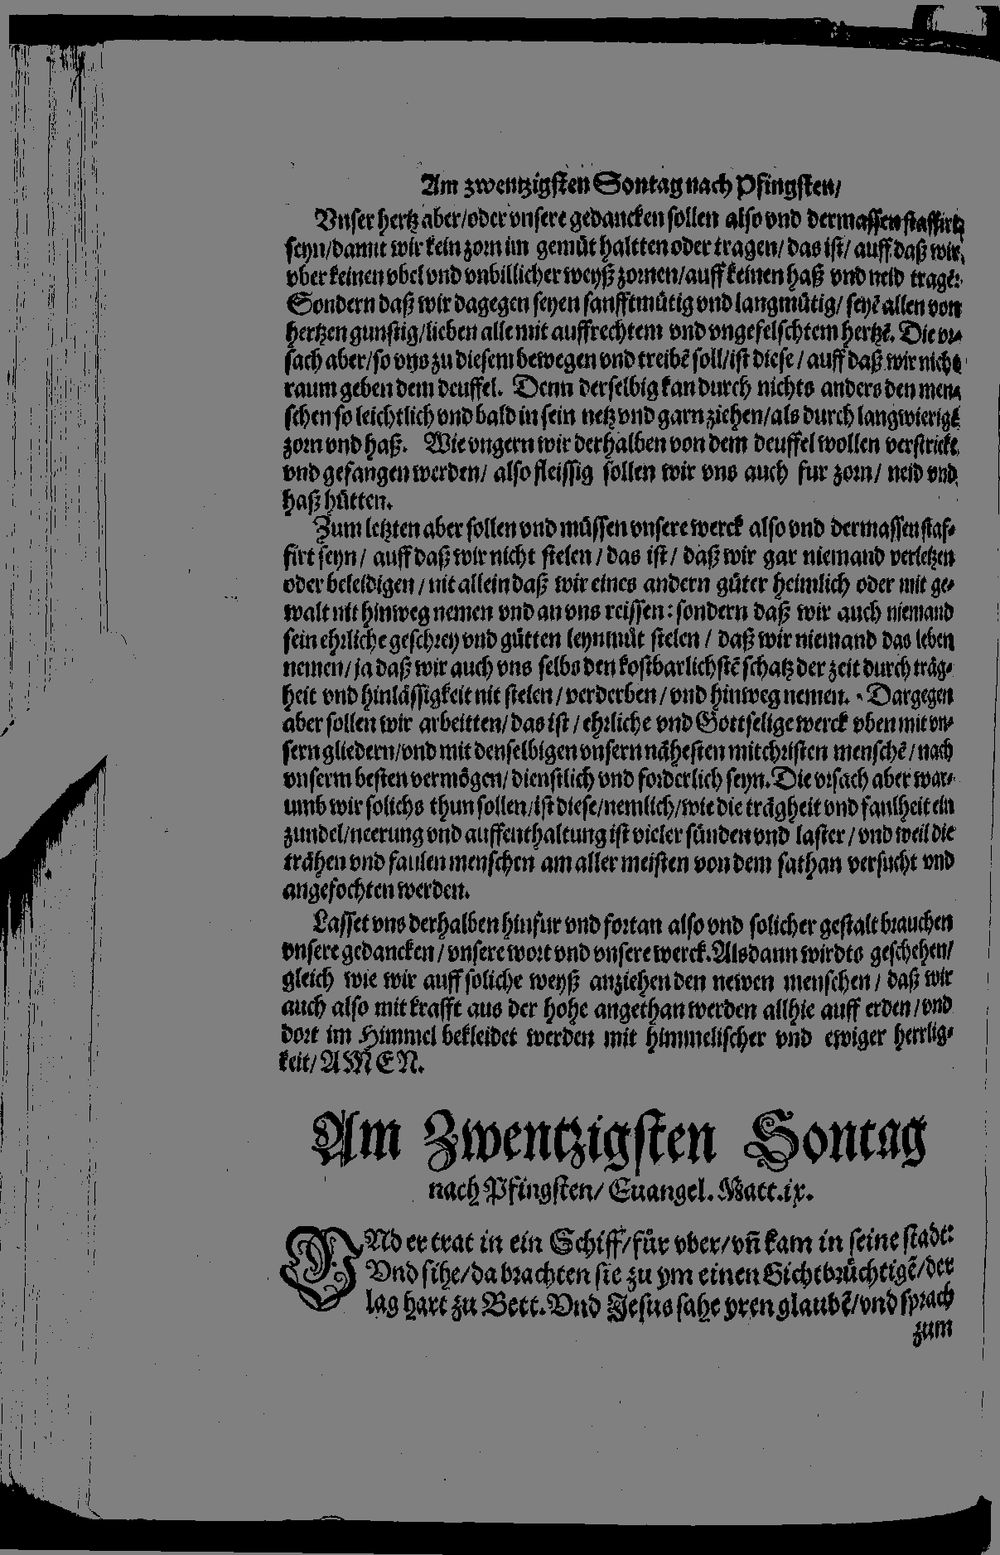 Am zwentzigsten Sontag nach Pfingsten/
Vnser hertz aber/oder vnsere gedancken sollen also vnd dermassen staffirt
seyn/damit wir kein zorn im gemüt haltten oder tragen/das ist/auff daß wir
vber keinen vbel vnd vnbillicher weyß zornen/auff keinen haß vnd neid tragē:
Sondern daß wir dagegen seyen sanfftmütig vnd langmütig/seyē allen von
hertzen gunstig/lieben alle mit auffrechtem vnd vngefelschtem hertzē. Die vr⸗
sach aber/so vns zu diesem bewegen vnd treibē soll/ist diese/auff daß wir nicht
raum geben dem deuffel. Denn derselbig kan durch nichts anders den men⸗
schen so leichtlich vnd bald in sein netz vnd garn ziehen/als durch langwierigē
zorn vnd haß. Wie vngern wir derhalben von dem deuffel wollen verstrickt
vnd gefangen werden/also fleissig sollen wir vns auch fur zorn/neid vnd
haß hütten.
Zum letzten aber sollen vnd müssen vnsere werck also vnd dermassen staf⸗
firt seyn/auff daß wir nicht stelen/das ist/daß wir gar niemand verletzen
oder beleidigen/nit allein daß wir eines andern güter heimlich oder mit ge⸗
walt nit hinweg nemen vnd an vns reissen: sondern daß wir auch niemand
sein ehrliche geschrey vnd gütten leynmüt stelen/daß wir niemand das leben
nemen/ja daß wir auch vns selbs den kostbarlichstē schatz der zeit durch träg⸗
heit vnd hinlässigkeit nit stelen/verderben/vnd hinweg nemen. Dargegen
aber sollen wir arbeitten/das ist/ehrliche vnd Gottselige werck vben mit vn⸗
sern gliedern/vnd mit denselbigen vnsern nähesten mitchristen menschē/nach
vnserm besten vermögen/dienstlich vnd forderlich seyn. Die vrsach aber war⸗
umb wir solichs thun sollen/ist diese/nemlich/wie die trägheit vnd faulheit ein
zundel/neerung vnd auffenthaltung ist vieler sünden vnd laster/vnd weil die
trähen vnd faulen menschen am aller meisten von dem sathan versucht vnd
angefochten werden.
Lasset vns derhalben hinfur vnd fortan also vnd solicher gestalt brauchen
vnsere gedancken/vnsere wort vnd vnsere werck. Alsdann wirdts geschehen/
gleich wie wir auff soliche weyß anziehen den newen menschen/daß wir
auch also mit krafft aus der hohe angethan werden allhie auff erden/vnd
dort im Himmel bekleidet werden mit himmelischer vnd ewiger herrlig⸗
keit/AMEN.
Am Zwentzigsten Sontag
nach Pfingsten/Euangel. Matt.ix.
VNd er trat in ein Schiff/für vber/vñ kam in seine stadt:
Vnd sihe/da brachten sie zu ym einen Gichtbrüchtigē/der
lag hart zu Bett. Vnd Jesus sahe yren glaubē/vnd sprach
zum